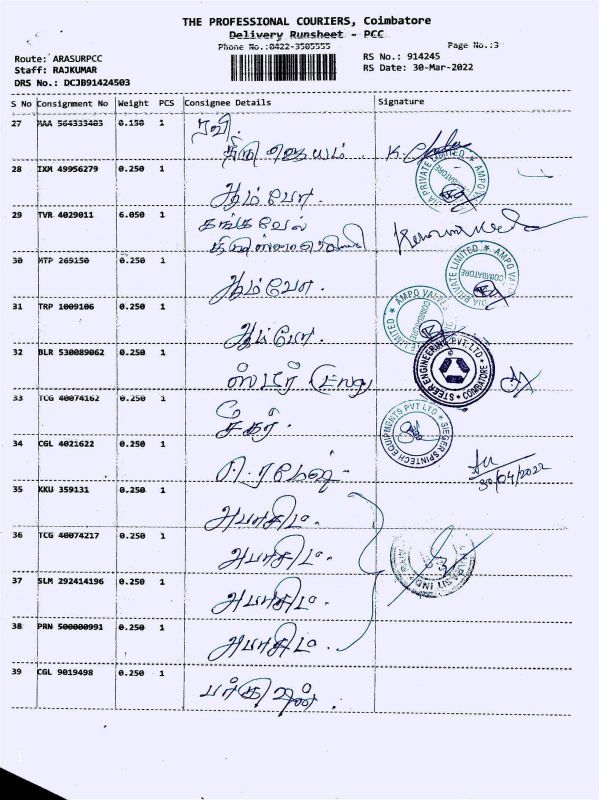 THE PROFESSIONAL COURIERS, Coimbatore
Delivery Runsheet - PCC
Phone No.:0422-3505555 Page No.:3
Route: ARASURPCC RS No.: 914245
Staff: RAJKUMAR RS Date: 30-Mar-2022
DRS No.: DCJB91424503
S No Consignment No Weight PCS Consignee Details Signature
27 MAA 564333403 0.150 1 ரவி.
திரு
28 IXM 49956279 0.250 1
ஆம்போ.
29 TVR 4029011 6.050 1 தங்கவேல்
30 MTP 269150 0.250 1
ஆம்போ.
31 TRP 1009106 0.250 1
ஆம்போ.
32 BLR 530089062 0.250 1
ஸ்டீர்
33 TCG 40074162 0.250 1
சீகர்.
34 CGL 4021622 0.250 1
ரமேஷ் 30/04/2022
35 KKU 359131 0.250 1
அபாசிட்.
36 TCG 40074217 0.250 1
அபாசிட்.
37 SLM 292414196 0.250 1
அபாசிட்.
38 PRN 500000991 0.250 1
அபாசிட்.
39 CGL 9019498 0.250 1
DIA PRIVATE LIMITED ★ AMPO VA
COIMBATORE
STEER ENGINEERING PVT.LTD ★ COIMBATORE
SIEGER SPINTECH EQUIPMENTS PVT LTD